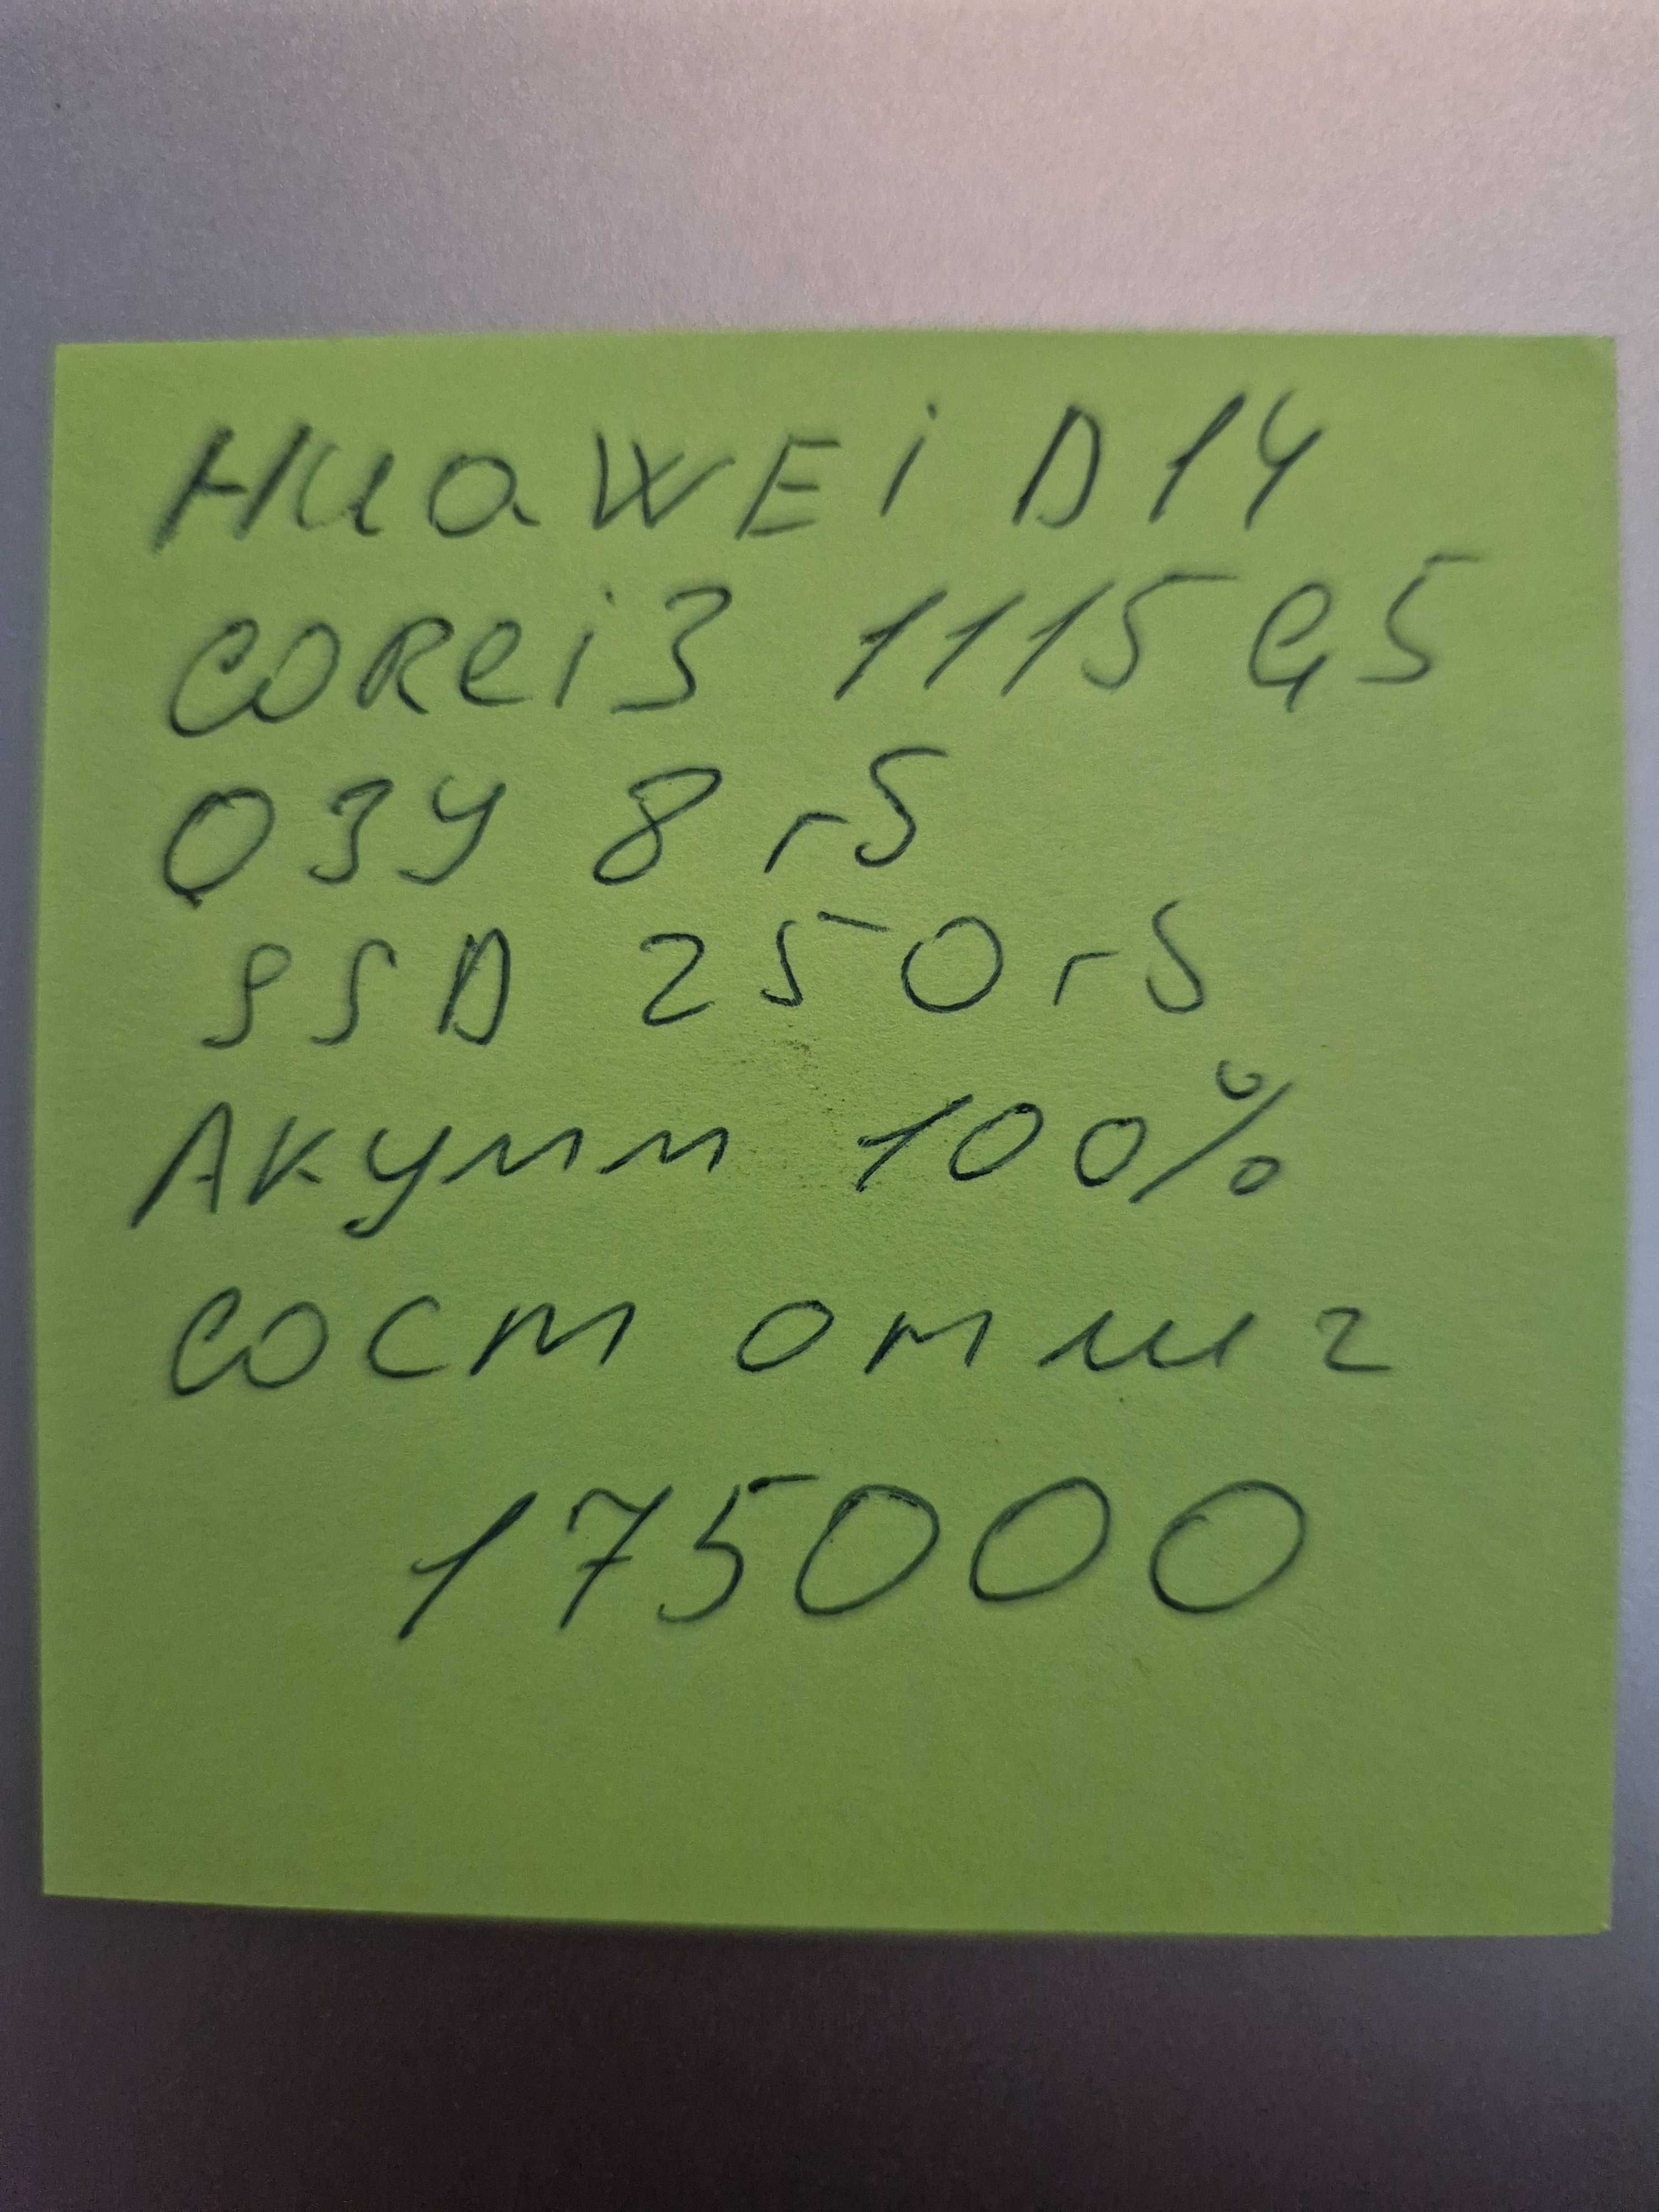 HUAWEI D14
COREi3 1115G5
ОЗУ 8 гб
SSD 250 гб
Акумм 100%
сост отлиг
175000